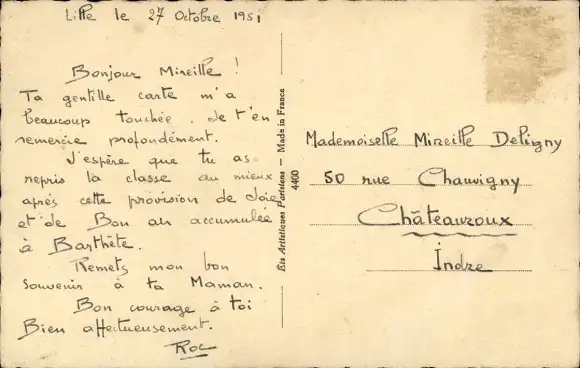 Lille le 27 Octobre 1951
Bonjour Mireille !
Ta gentille carte m'a
beaucoup touchée. Je t'en
remercie profondément.
J'espère que tu as
repris la classe au mieux
après cette provision de Joie
et de Bon air accumulée
à Barthète.
Remets mon bon
souvenir à ta Maman.
Bon courage à toi
Bien affectueusement.
Roc
Éts Artistiques Parisiens — Made in France
4400
Mademoiselle Mireille Deligny
50 rue Chauvigny
Châteauroux
Indre